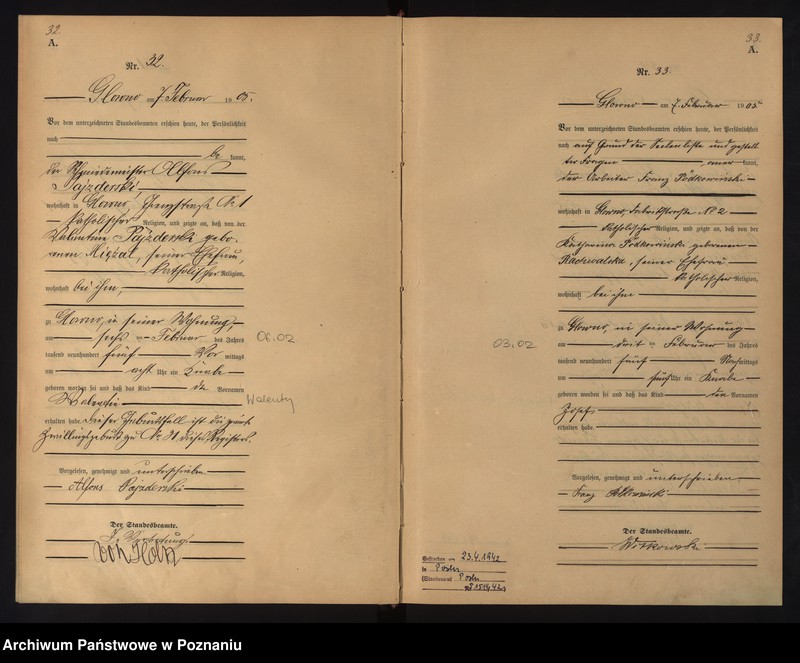 32.
A.
Nr. 32.
Glowno am 7. Februar 1905.
Vor dem unterzeichneten Standesbeamten erschien heute, der Persönlichkeit
nach
be kannt,
der Schmiedemeister Alfons
Pajzderski,
wohnhaft in Glowno, № 1
katholischer Religion, und zeigte an, daß von der
Valentine Pajzderski gebo-
renen , seiner Ehefrau,
katholischer Religion,
wohnhaft bei ihm,
zu Glowno, in seiner Wohnung,
am sechs ten Februar des Jahres
tausend neunhundert fünf Vor mittags
um acht Uhr ein Knabe
geboren worden sei und daß das Kind den Vornamen
Valentin
erhalten habe. Dieser Geburtsfall ist die zweite
Zwillingsgeburt zu № 31 dieses Registers.
Vorgelesen, genehmigt und unterschrieben
Alfons Pajzderski
Der Standesbeamte.
In Vertretung
06.02
Walenty
33.
A.
Nr. 33.
Glowno am 7. Februar 1905
Vor dem unterzeichneten Standesbeamten erschien heute, der Persönlichkeit
nach auf Grund der Seelenliste und gestell-
ter Fragen aner kannt,
der Arbeiter Franz
wohnhaft in Glowno, Fabrikstraße № 2
katholischer Religion, und zeigte an, daß von der
Katharina geborenen
, seiner Ehefrau
katholischer Religion,
wohnhaft bei ihm
zu Glowno, in seiner Wohnung
am drit ten Februar des Jahres
tausend neunhundert fünf Nachmittags
um fünf Uhr ein Knabe
geboren worden sei und daß das Kind den Vornamen
Józef
erhalten habe.
Vorgelesen, genehmigt und unterschrieben
Franz
Der Standesbeamte.
Witkowski
03.02
Gestorben am 23.4.1942
in Posen
(Standesamt Posen
Archiwum Państwowe w Poznaniu